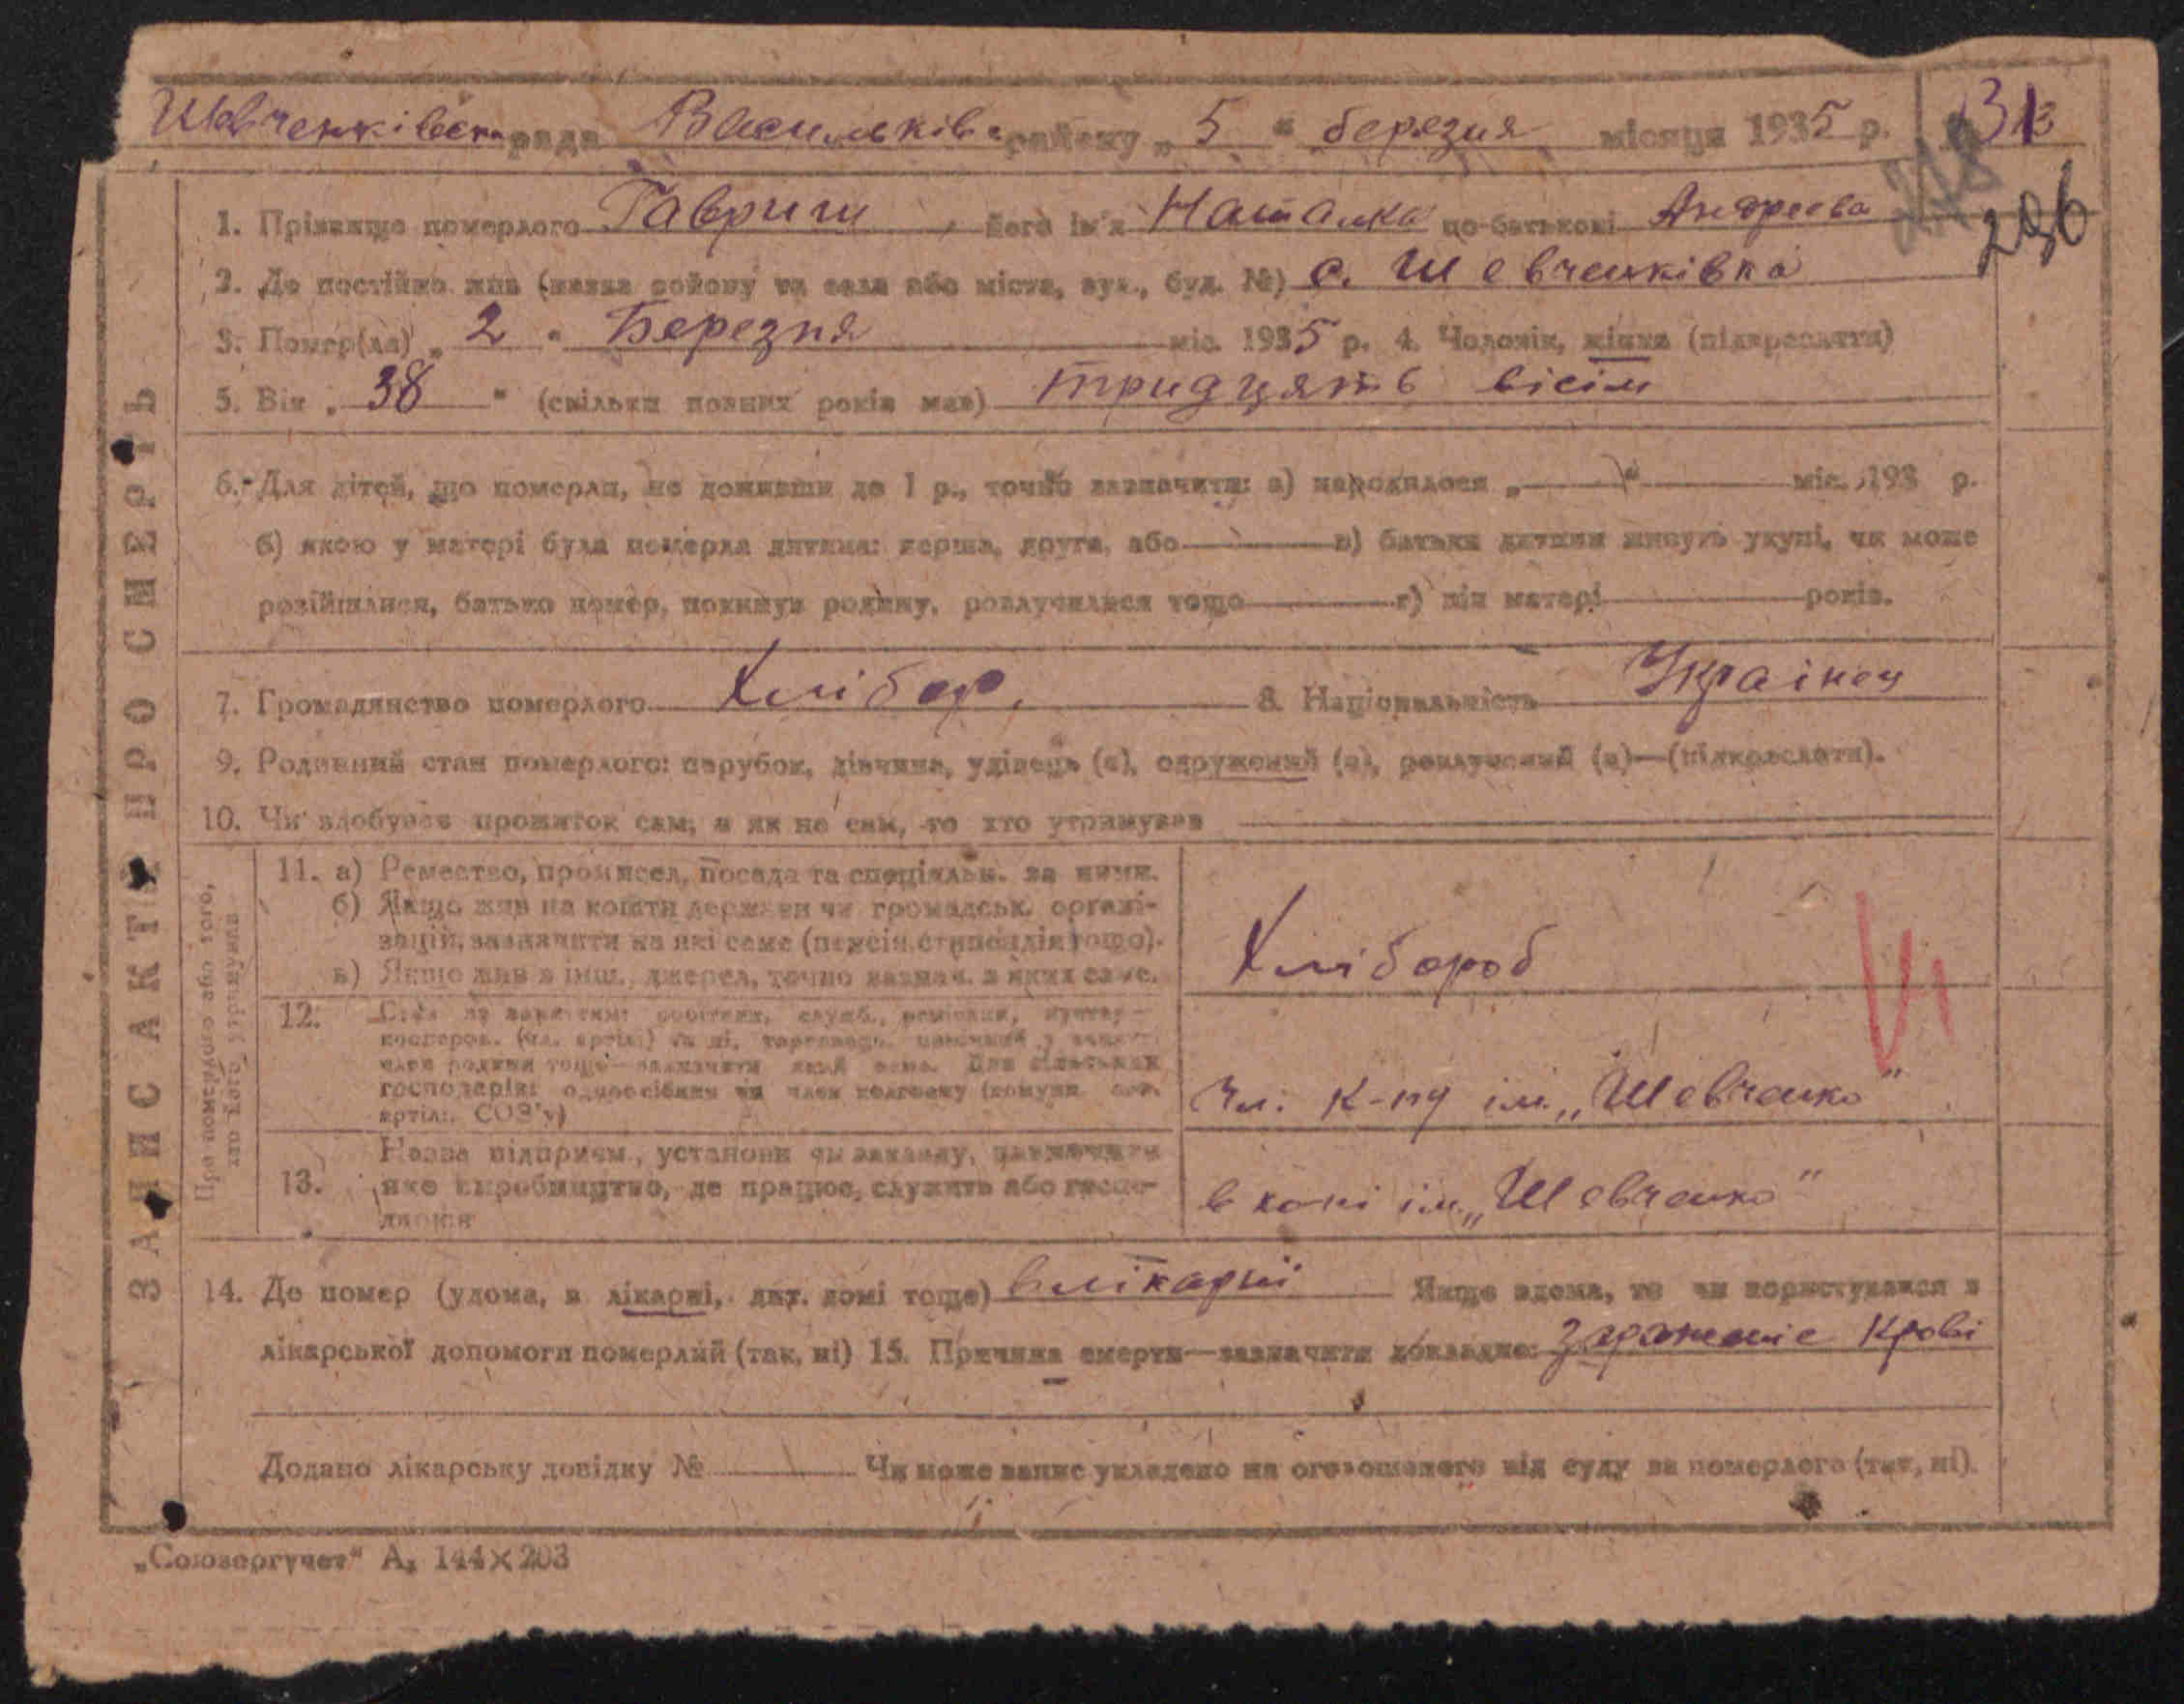 Шевченківська рада Васильків. району „ 5 “ березня місяця 1935 р. 313
218
296
1. Прізвище померлого Гавриш його ім'я Наталка по-батькові Андреева
2. Де постійно жив (назва району та села або міста, вул., буд. №) с. Шевченківка
3. Помер(ла) „ 2 “ Березня міс. 1935 р. 4. Чоловік, жінка (підкреслити)
5. Вік „ 38 “ (скільки повних років мав) тридцять вісім
6. Для дітей, що померли, не доживши до 1 р., точно зазначити: а) народилося „ “ міс. 193 р.
б) якою у матері була померла дитина: перша, друга, або в) батьки дитини живуть укупі, чи може
розійшлися, батько помер, покинув родину, розлучилися тощо г) вік матері років.
7. Громадянство померлого Хлібор. 8. Національність Українец
9. Родинний стан померлого: парубок, дівчина, удівець (а), одружений (а), розлучений (а)—(підкреслити).
10. Чи здобував прожиток сам, а як не сам, то хто утримував
ЗАПИС АКТУ ПРО СМЕРТЬ
Про померлого або того, хто його утримував
11. а) Ремество, промисел, посада та спеціяльн. за ними.
б) Якщо жив на кошти держави чи громадськ. органі-
зацій, зазначити на які саме (пенсія, стипендія тощо).
в) Якщо жив з інш. джерел, точно зазнач. з яких саме.
Хлібороб
12. Стан за заняттям: робітник, служб.,
господарів: одноосібник чи член колгоспу (комуни
артіл., СОЗ'у)
Чл. к-пу ім. „Шевченко“
13. Назва підприєм., установи чи закладу, зазначити
яке виробництво, де працює, служить або госпо-
в колі ім. „Шевченко“
14. Де помер (удома, в лікарні, дит. домі тощо) в лікарні Якщо вдома, то чи користувався з
лікарської допомоги померлий (так, ні) 15. Причина смерти—зазначити докладно: зараженіе Крові
Додано лікарську довідку № Чи може запис укладено на оголошеного від суду за померлого (так, ні).
„Союзоргучет“ А₅ 144×203